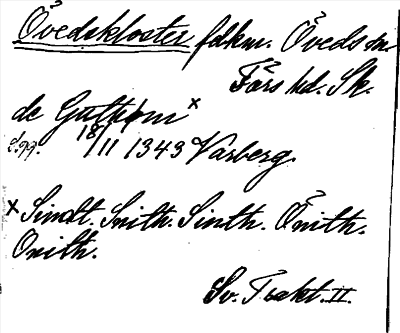 Övedskloster fdkm. Öveds sn
Färs hd. Sk.
de Guthini x
18/11 1343 Varberg.
x Sindt. Snith. Sinth. Önith.
Onith.
Sv. Trakt. II.